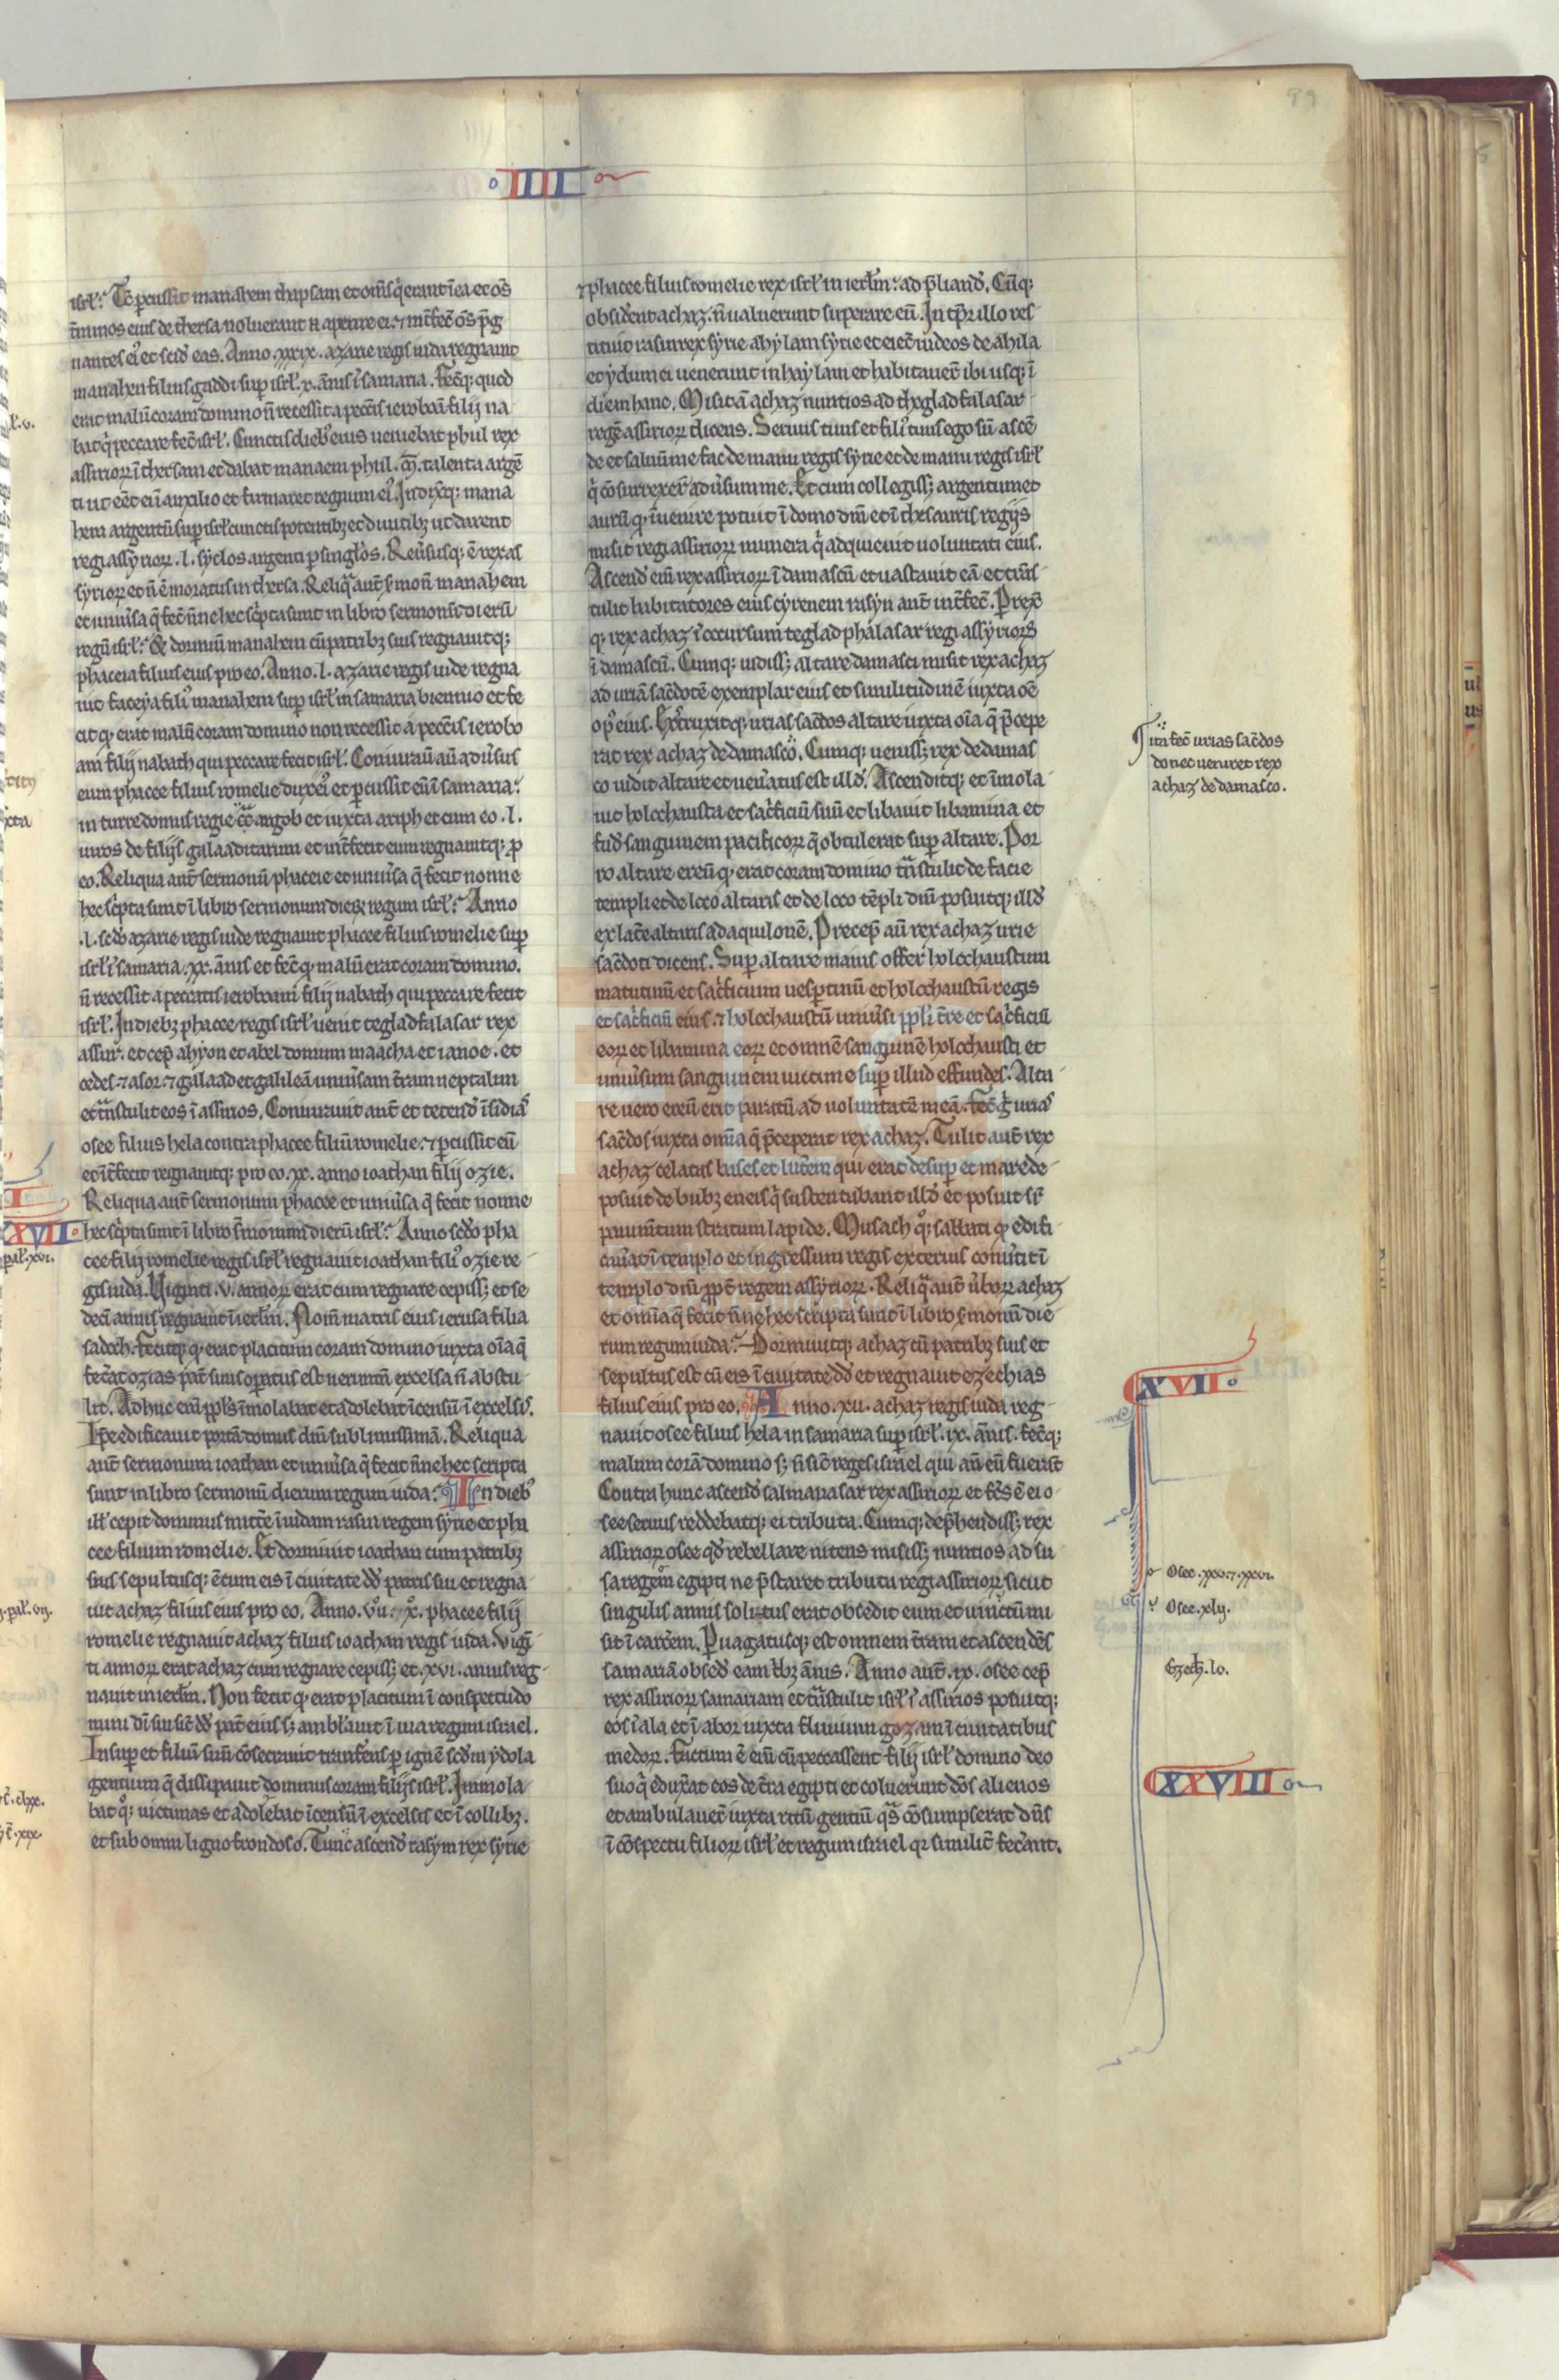 IIII
isrl'. Tc̄ percussit manahem thapsam et om̄s q̇ erant ī ea et os̄
t̄minos eius de thersa noluerant .n. aperire ei. ⁊ int̄fec̄ os̄ p̄g
nantes ei' et scid' eas. Anno .xxxix. azarie regis iuda regnauit
manahen filius gaddi sup isrl'. x. ānis ī samaria. Fec̄q; quod
erat malū coram domino n̄ recessit a pecc̄is ieroboā filij na
bat q̇ peccare fec̄ isrl'. Cunctis dieb; eius ueniebat phul rex
assirior̄ ī thersam et dabat manaem phul .M̄. talenta argē
ti ut eēt ei ī auxilio et firmaret regnum ei'. Indixq; mana
hem argentū sup isrl' cunctis potentibz et diuitibz ut darent
regi assyrior̄ .l. syclos argenti p singlos. Reuersusq; ē rex as
syrior̄ et n̄ ē moratus in thersa. Reliq̄ aut̄ s̄mon̄ manahem
et uniu'sa q̄ fec̄ n̄ne hec sc̄pta sunt in libro sermonū dierū
regū isrl'. Et dormiuit manahem cū patribz suis regnauitq;
phaceia filius eius pro eo. Anno .l. azarie regis iude regna
uit faceya fili' manahem sup isrl' in samaria biennio et fe
cit q; erat malū coram domino non recessit a pecc̄is ierobo
am filij nabath qui peccare fecit isrl'. Coniurauit aū adu'sus
eum phacee filius romelie dux ei' et pcussit eū ī samaria.
in turre domus regie c̄c̄a argob et iuxta ariph et cum eo .l.
uiros de filijs galaaditarum et int̄fecit eum regnauitq; p
eo. Reliqua aut̄ sermonū phaceie et uniu'sa q̄ fecit nonne
hec sc̄pta sunt ī libro sermonum dierū regum isrl'. Anno
.l. sc̄do azarie regis iude regnauit phacee filius romelie sup
isrl' ī samaria .xx. ānis et fec̄ q; malū erat coram domino.
n̄ recessit a peccatis ieroboam filij nabath qui peccare fecit
isrl'. In diebz phacee regis isrl' uenit teglad falasar rex
assur. et cep̄ ahyon et abel domum maacha et ianoe. et
cedes. ⁊ asor. ⁊ galaad et galileā uniu'sam t̄ram neptalim
et t̄nstulit eos ī assirios. Coniurauit aut̄ et tetend' īsidias
osee filius hela contra phacee filiū romelie. ⁊ pcussit eū
et īt̄fecit regnauitq; pro eo .xx. anno ioathan filij ozie.
Reliqua aut̄ sermonum phacee et uniu'sa q̄ fecit nonne
hec sc̄pta sunt ī libro s̄monum dierū isrl'. Anno sc̄do pha
cee filij romelie regis isrl' regnauit ioathan fili' ozie re
gis iuda. Viginti .v. annor̄ erat cum regnare cepiss; et se
decī annis regnauit ī ierlm̄. Nom̄ matris eius ierusa filia
sadoch. Fecitq; q; erat placitum coram domino iuxta oīa q̄
fec̄at ozias pat̄ suus opatus est uerumt̄n excelsa n̄ abstu
lit. Adhuc eni ppls īmolabat et adolebat īcensū ī excelsis.
Ipse edificauit portā domus dn̄i sublimissimā. Reliqua
aut̄ sermonum ioathan et uniu'sa q̄ fecit n̄ne hec scripta
sunt in libro sermonū dierum regum iuda. In dieb'
ill' cepit dominus mitt̄e ī iudam rasin regem syrie et pha
cee filium romelie. Et dormiuit ioathan cum patribz
suis sepultusq; ē cum eis ī ciuitate dd' patris sui et regna
uit achaz filius eius pro eo. Anno .vii. x. phacee filij
romelie regnauit achaz filius ioathan regis iuda. Vigī
ti annor̄ erat achaz cum regnare cepiss; et .xvi. annis reg
nauit in ierlm̄. Non fecit q; erat placitum ī conspectu do
mini di sui sic̄ dd' pat̄ eius s; ambl'auit ī uia regum israel.
Insup et filiū suū cōsecrauit transfe̅ns p ignē scd̄m ydola
gentium q̄ dissipauit dominus coram filijs isrl'. Immola
bat q; uictimas et adolebat īcensū ī excelsis et ī collibz.
et sub omni ligno frondoso. Tunc ascend' rasym rex syrie
⁊ phacee filius romelie rex isrl' in ierlm̄. ad p̄liand'. Cūq;
obsid'ent achaz. n̄ ualuerunt superare eū. In tp̄r illo res
tituit rasin rex syrie ahylam syrie et eiec̄ iudeos de ahila
et ydumei uenerunt in haylam et habitauer̄ ibi usq; ī
diem hanc. Misit ā achaz nuntios ad theglad falasar
regē assirior̄ dicens. Seruus tuus et fili' tuus ego sū ascē
de et saluū me fac de manu regis syrie et de manu regis isrl'
q̇ cōsurrexer̄ adu'sum me. Et cum collegiss; argentum et
aurū q; īuenire potuit ī domo dn̄i et ī thesauris regijs
misit regi assirior̄ munera q̇ adquieuit uoluntati eius.
Ascend' eni rex assirior̄ ī damascū et uastauit eā et t̄ns
tulit habitatores eius cyrenem rasyn aut̄ int̄fec̄. Prex̄
q; rex achaz ī occursum teglad phalasar regi assyrior̄
ī damascū. Cumq; uidiss; altare damasci misit rex achaz
ad uriā sac̄dotē exemplar eius et similitudinē iuxta oē
op' eius. Ext̄ruxitq; urias sac̄dos altare iuxta oīa q̄ p̄cepe
rat rex achaz de damasco. Cumq; ueniss; rex de damas
co uidit altare et uen'atus est illd'. Ascenditq; et īmola
uit holochausta et sac̄ficiū suū et libauit libamina et
fud' sanguinem pacificor̄ q̄ obtulerat sup altare. Por
ro altare ereū q; erat coram domino t̄nstulit de facie
templi et de loco altaris et de loco tēpli dn̄i posuitq; illd'
ex lat̄e altaris ad aquilonē. Precep̄ aū rex achaz urie
sac̄doti dicens. Sup altare maius offer holochaustum
matutinū et sac̄ficium uesptinū et holochaustū regis
et sac̄ficiū eius. ⁊ holochaustū uniu'si ppli t̄re et sac̄ficiū
eor̄ et libamina eor̄ et omnē sanguinē holochausti et
uniu'sum sanguinem uictime sup illud effundes. Alta
re uero ereū erit paratū ad uoluntatē meā. Fec̄ g̊ urias
sac̄dos iuxta omīa q̄ p̄ceperat rex achaz. Tulit aut̄ rex
achaz celatas bases et lut̄em qui erat desup et mare de
posuit de bubz eneis q̇ sustentabant illd' et posuit s̄r
pauim̄tum stratum lapide. Musach q; sabbati q; edifi
cau'at ī templo et ingressum regis exterius conu'tit ī
templo dn̄i ppt̄ regem assyrior̄. Reliq̄ aut̄ u'bor̄ achaz
et omīa q̄ fecit n̄ne hec scripta sunt ī libro s̄monū die
rum regum iuda. Dormiuitq; achaz cū patribz suis et
sepultus est cū eis ī ciuitate dd' et regnauit ezechias
filius eius pro eo. Anno .xii. achaz regis iuda reg
nauit osee filius hela in samaria sup isrl' .ix. ānis. fec̄q;
malum corā domino s; n̄ sic̄ reges israel qui an̄ eū fuerāt
Contra hunc ascend' salmanasar rex assirior̄ et fc̄s ē ei o
see seruus reddebatq; ei tributa. Cumq; dep̄hendiss; rex
assirior̄ osee qd' rebellare nitens misiss; nuntios ad su
sa regem egipti ne p̄staret tributa regi assirior̄ sicut
singulis annis solitus erat obsedit eum et uinctū mi
sit ī carc̄em. Puagatusq; est omnem t̄ram et ascendēs
samariā obsed' eam t̄bz ānis. Anno aut̄ .ix. osee cep̄
rex assirior̄ samariam et t̄nstulit isrl' ī assirios posuitq;
eos ī ala et ī abor iuxta fluuium gozam ī ciuitatibus
medor̄. Factum ē eni cū peccassent filij isrl' domino deo
suo q̇ eduxat eos de t̄ra egipti et coluerunt dōs alienos
et ambulauer̄ iuxta ritū gentiū q̄s cōsumpserat dn̄s
ī cōspectu filior̄ isrl' et regum israel qr similit̄ fec̄ant.
ita fec̄ urias sac̄dos
donec ueniret rex
achaz de damasco.
XVII
Osee .xxv. ⁊ .xxvi.
Osee .xly.
Ezech. lv.
XXVIII
XVII
pal'. xvi.
pal'. vij.
99